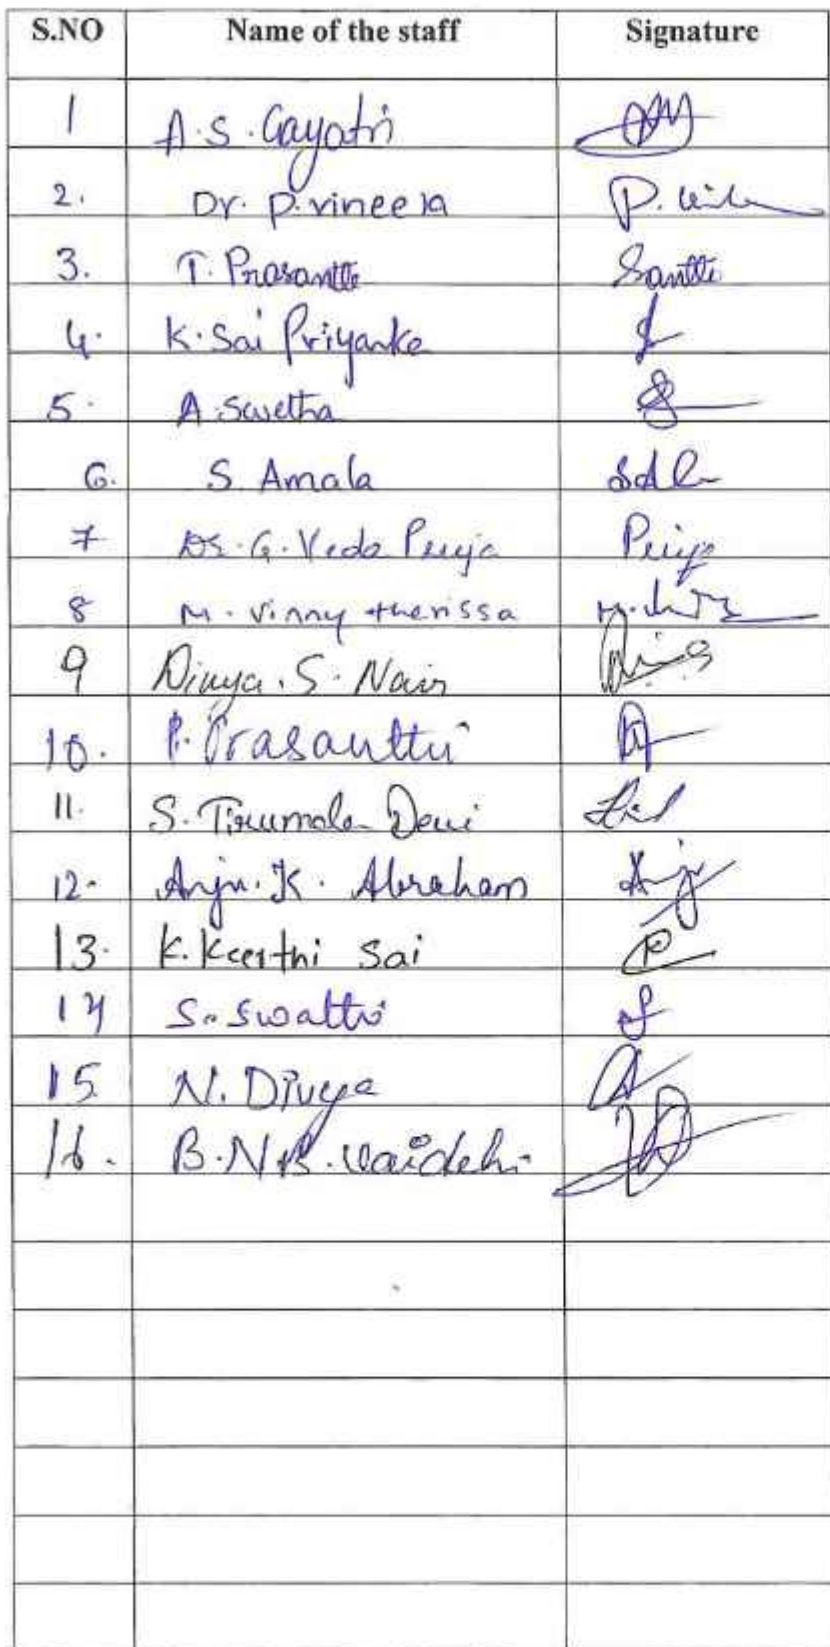 S.NO Name of the staff Signature
1 A.S.Gayatri
2. Dr. P.vineela P.
3. T. Prasantti Santti
4. K.Sai Priyanka
5. A.Swetha
6. S. Amala
7 Dr. G. Veda Priya Priya
8 M. Vinny therissa
9 Divya.S. Nair
10. P. Prasantthi
11. S. Tirumala Devi
12. Anju.K. Abraham Anju
13. K.Keerthi Sai
14 S. Swatthi
15 N. Divya
16. B.N.B.Vaidehi